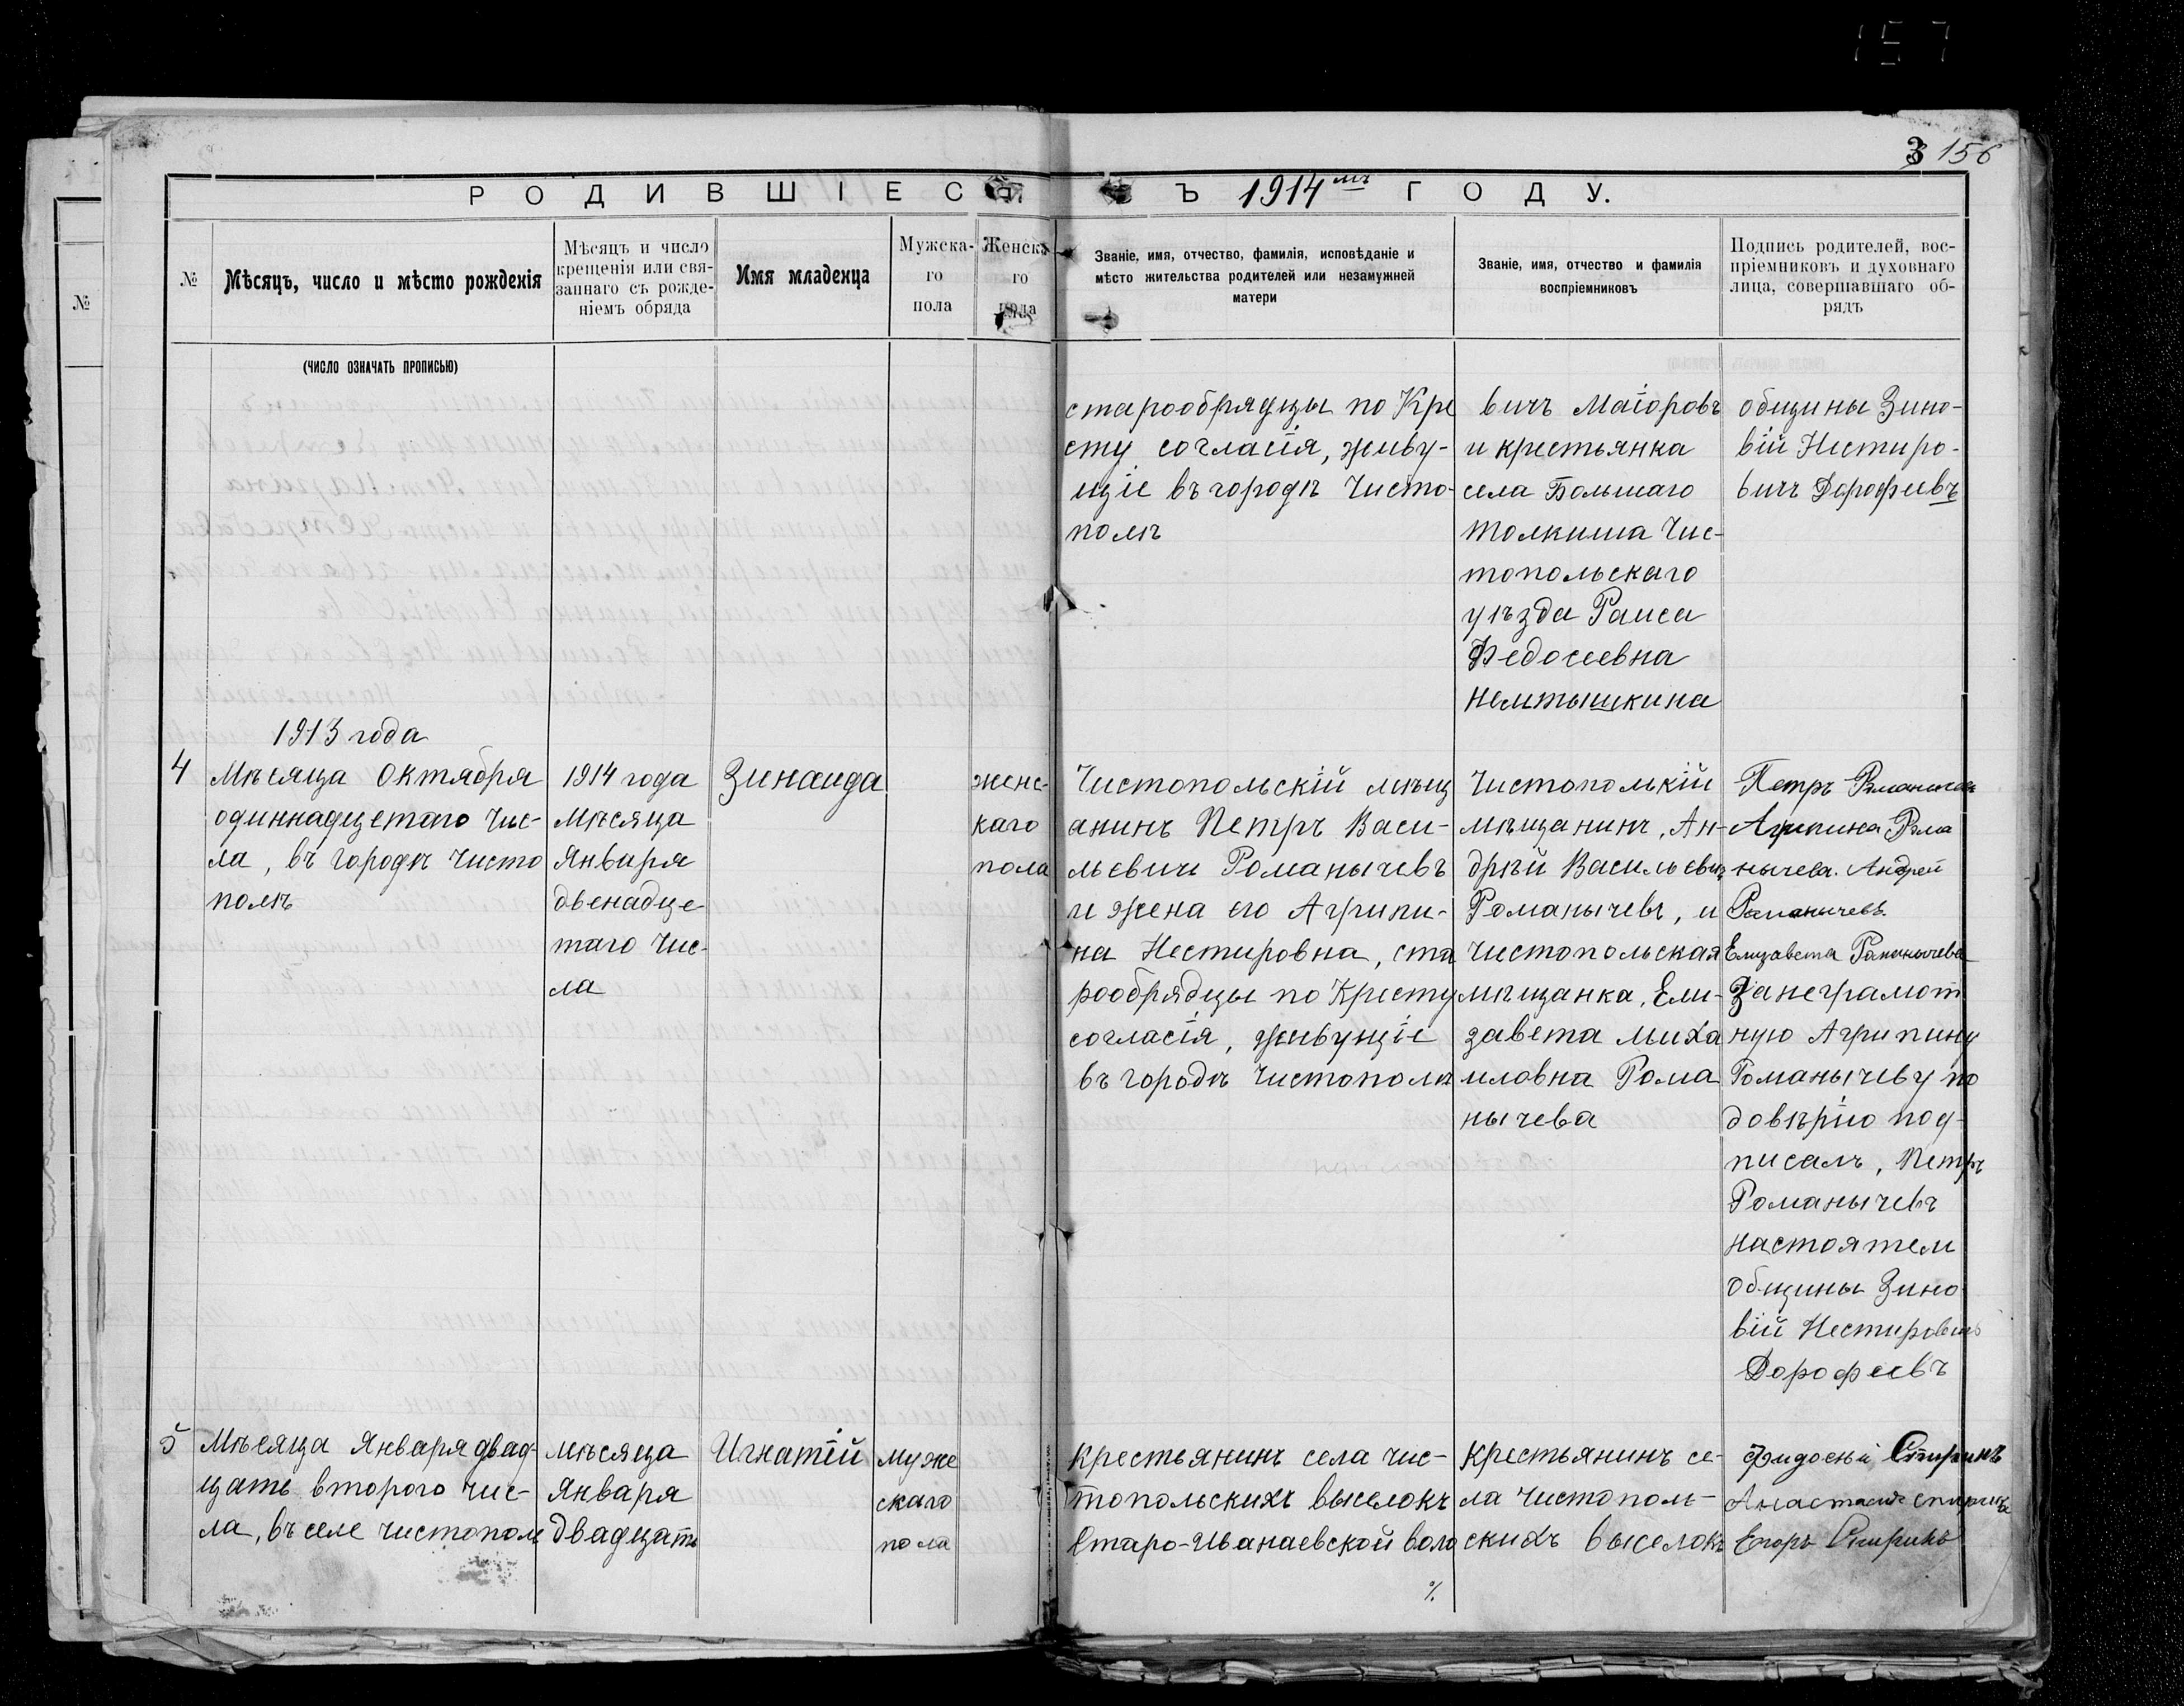 157
3 156
РОДИВШІЕСЯ ВЪ 1914мъ ГОДУ.
№
№
Мѣсяцъ, число и мѣсто рожденія
Мѣсяцъ и число
крещенія или свя-
заннаго съ рожде-
ніемъ обряда
Имя младенца
Мужска-
го
пола
Женска
го
пола
Званіе, имя, отчество, фамилія, исповѣданіе и
мѣсто жительства родителей или незамужней
матери
Званіе, имя, отчество и фамилія
воспріемниковъ
Подпись родителей, вос-
пріемниковъ и духовнаго
лица, совершавшаго об-
рядъ
(ЧИСЛО ОЗНАЧАТЬ ПРОПИСЬЮ)
старообрядцы по Кре
сту согласія, живу-
щіе въ городѣ Чисто-
полѣ
вичъ Маіоровъ
и крестьянка
села Большаго
Толкиша Чис-
топольскаго
уѣзда Раиса
Федосеевна
Немтышкина
общины Зино-
вій Нестиро-
вичъ Дорофеевъ
4
1913 года
Мѣсяца Октября
одиннадцетаго Чис-
ла, въ Городѣ Чисто
полѣ
1914 года
Мѣсяца
Января
двенадце
таго Чис-
ла
Зинаида
женс-
каго
пола
Чистопольскій мѣщ
анинъ Петръ Васи-
льевичь Романычевъ
и жена его Агрипи-
на Нестировна, ста
рообрядцы по Кресту
согласія, живущіе
въ городѣ Чистополѣ
Чистополькій
мѣщанинъ, Ан-
дрѣй Васильевичъ
Романычевъ, и
Чистопольская
мѣщанка, Ели-
завета Миха
иловна Рома
нычева
Петръ Романычевъ
Агрипина Рома
нычева. Андрей
Романычевъ.
Елизавета Романычева
За неграмот
ную Агрипину
Романычеву по
довѣрію под-
писалъ, Петръ
Романычевъ
настоятель
Общины Зино
вій Нестировичь
Дорофеевъ
5
Мѣсяца Января двад-
цать второго чис-
ла, въ селе чистополь
мѣсяца
Января
двадцать
Игнатій
муже
скаго
пола
Крестьянинъ села Чис-
топольскихъ выселокъ
Старо-Иванаевской воло
%
Крестьянинъ се-
ла Чистополь-
скихъ выселокъ
Фидосѣй Спиринъ
Анастасия Спирина
Егоръ Спиринъ